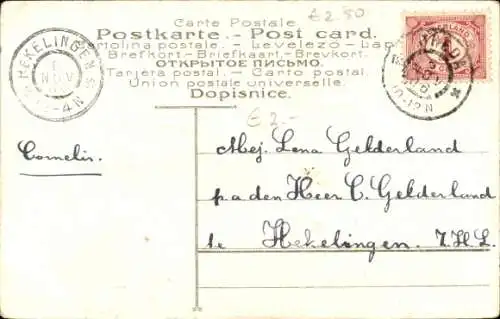 Carte Postale.
£ 2.50
Postkarte.- Post card.
Cartolina postale. - Levelezo-Lap
Brefkort-Briefkaart-Brevkort.
ОТКРЫТОЕ ПИСЬМО.
Tarjeta postal. - Carto postal.
Union postale universelle.
Dopisnice.
HEKELINGEN
NOV
-4N
-12N
£ 2.-
Cornelis.
Mej. Lena Gelderland
p.a den Heer C. Gelderland
te Hekelingen. Z.H.L.